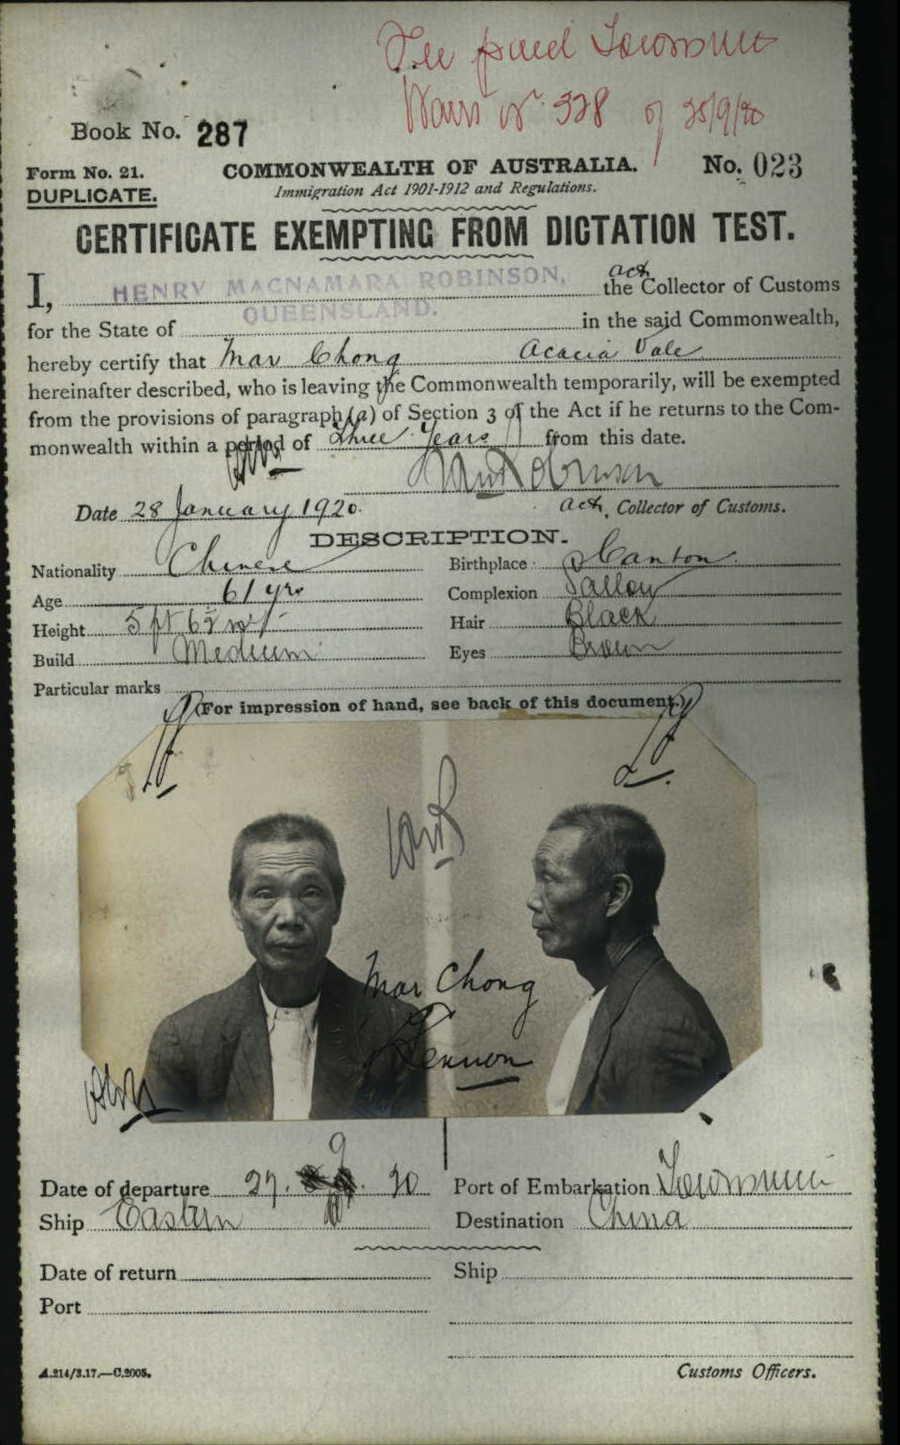 Fee paid Townsville
Warr No. 328 of 25/9/20
Book No. 287
Form No. 21. COMMONWEALTH OF AUSTRALIA. No. 023
DUPLICATE. Immigration Act 1901-1912 and Regulations.
CERTIFICATE EXEMPTING FROM DICTATION TEST.
I, HENRY MACNAMARA ROBINSON, actg the Collector of Customs
for the State of QUEENSLAND. in the said Commonwealth,
hereby certify that Mar Chong Acacia Vale
hereinafter described, who is leaving the Commonwealth temporarily, will be exempted
from the provisions of paragraph (a) of Section 3 of the Act if he returns to the Com-
monwealth within a period of three years from this date.
Robinson
Date 28 January 1920. actg. Collector of Customs.
DESCRIPTION.
Nationality Chinese Birthplace Canton
Age 61 yrs Complexion Sallow
Height 5 ft Hair Black
Build Medium Eyes Brown
Particular marks
(For impression of hand, see back of this document.)
Mar Chong
Lennon
Date of departure 27. 9. 20 Port of Embarkation Townsville
Ship Eastern Destination China
Date of return Ship
Port
A.214/3.17.—C.2005. Customs Officers.